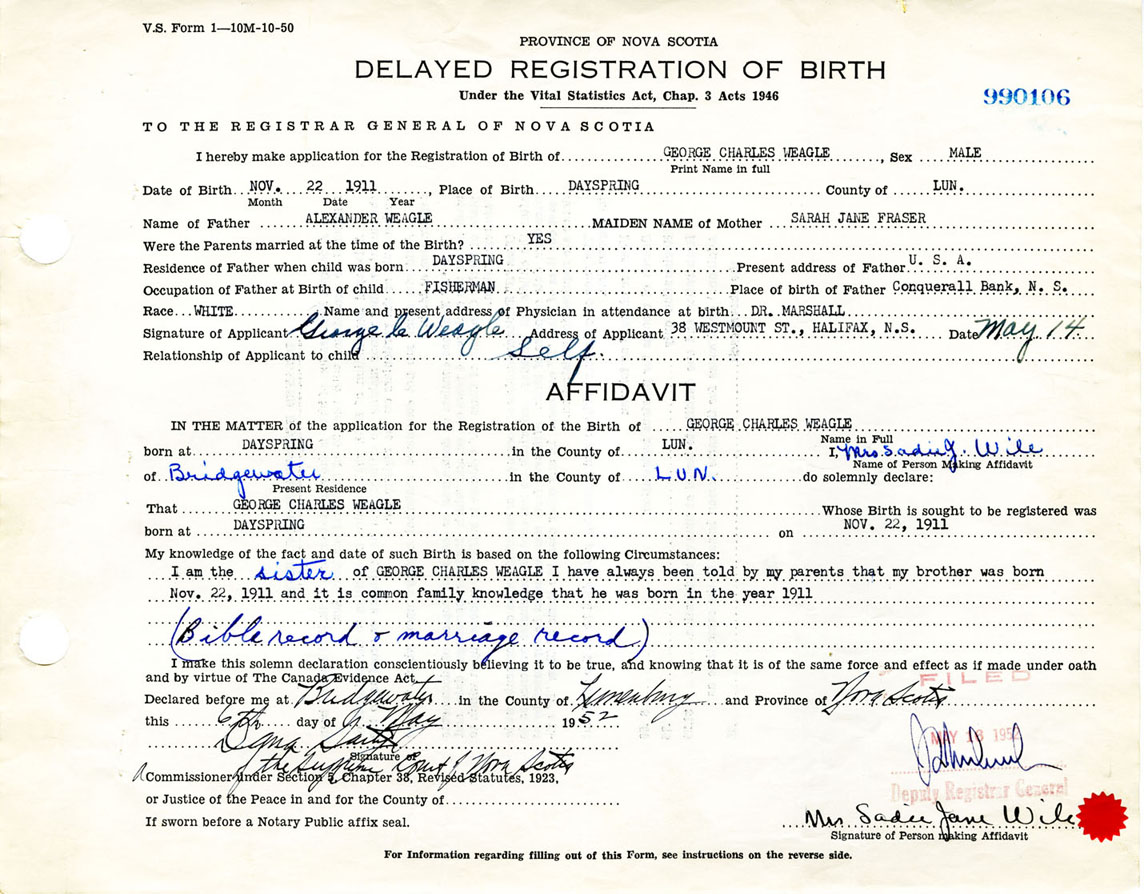 V.S. Form 1—10M-10-50
PROVINCE OF NOVA SCOTIA
DELAYED REGISTRATION OF BIRTH
Under the Vital Statistics Act, Chap. 3 Acts 1946
990106
TO THE REGISTRAR GENERAL OF NOVA SCOTIA
I hereby make application for the Registration of Birth of GEORGE CHARLES WEAGLE, Sex MALE
Print Name in full
Date of Birth NOV. 22 1911, Place of Birth DAYSPRING County of LUN.
Month Date Year
Name of Father ALEXANDER WEAGLE MAIDEN NAME of Mother SARAH JANE FRASER
Were the Parents married at the time of the Birth? YES
Residence of Father when child was born DAYSPRING Present address of Father U. S. A.
Occupation of Father at Birth of child FISHERMAN Place of birth of Father Conquerall Bank, N. S.
Race WHITE Name and present address of Physician in attendance at birth DR. MARSHALL
Signature of Applicant George C Weagle Address of Applicant 38 WESTMOUNT ST., HALIFAX, N.S. Date May 14
Relationship of Applicant to child Self.
AFFIDAVIT
IN THE MATTER of the application for the Registration of the Birth of GEORGE CHARLES WEAGLE
Name in Full
born at DAYSPRING in the County of LUN. I, Mrs Sadie J. Wile
Name of Person Making Affidavit
of Bridgewater in the County of LUN. do solemnly declare:
Present Residence
That GEORGE CHARLES WEAGLE Whose Birth is sought to be registered was
born at DAYSPRING on NOV. 22, 1911
My knowledge of the fact and date of such Birth is based on the following Circumstances:
I am the sister of GEORGE CHARLES WEAGLE I have always been told by my parents that my brother was born
Nov. 22, 1911 and it is common family knowledge that he was born in the year 1911
(Bible record & marriage record)
I make this solemn declaration conscientiously believing it to be true, and knowing that it is of the same force and effect as if made under oath
and by virtue of The Canada Evidence Act.
FILED
Declared before me at Bridgewater in the County of Lunenburg and Province of Nova Scotia
this 6th day of May 1952
MAY 13 1952
Signature of
the Supreme Court of Nova Scotia
A Commissioner under Section 5, Chapter 38, Revised Statutes, 1923,
Deputy Registrar General
or Justice of the Peace in and for the County of
If sworn before a Notary Public affix seal.
Mrs Sadie Jane Wile
Signature of Person making Affidavit
For Information regarding filling out of this Form, see instructions on the reverse side.